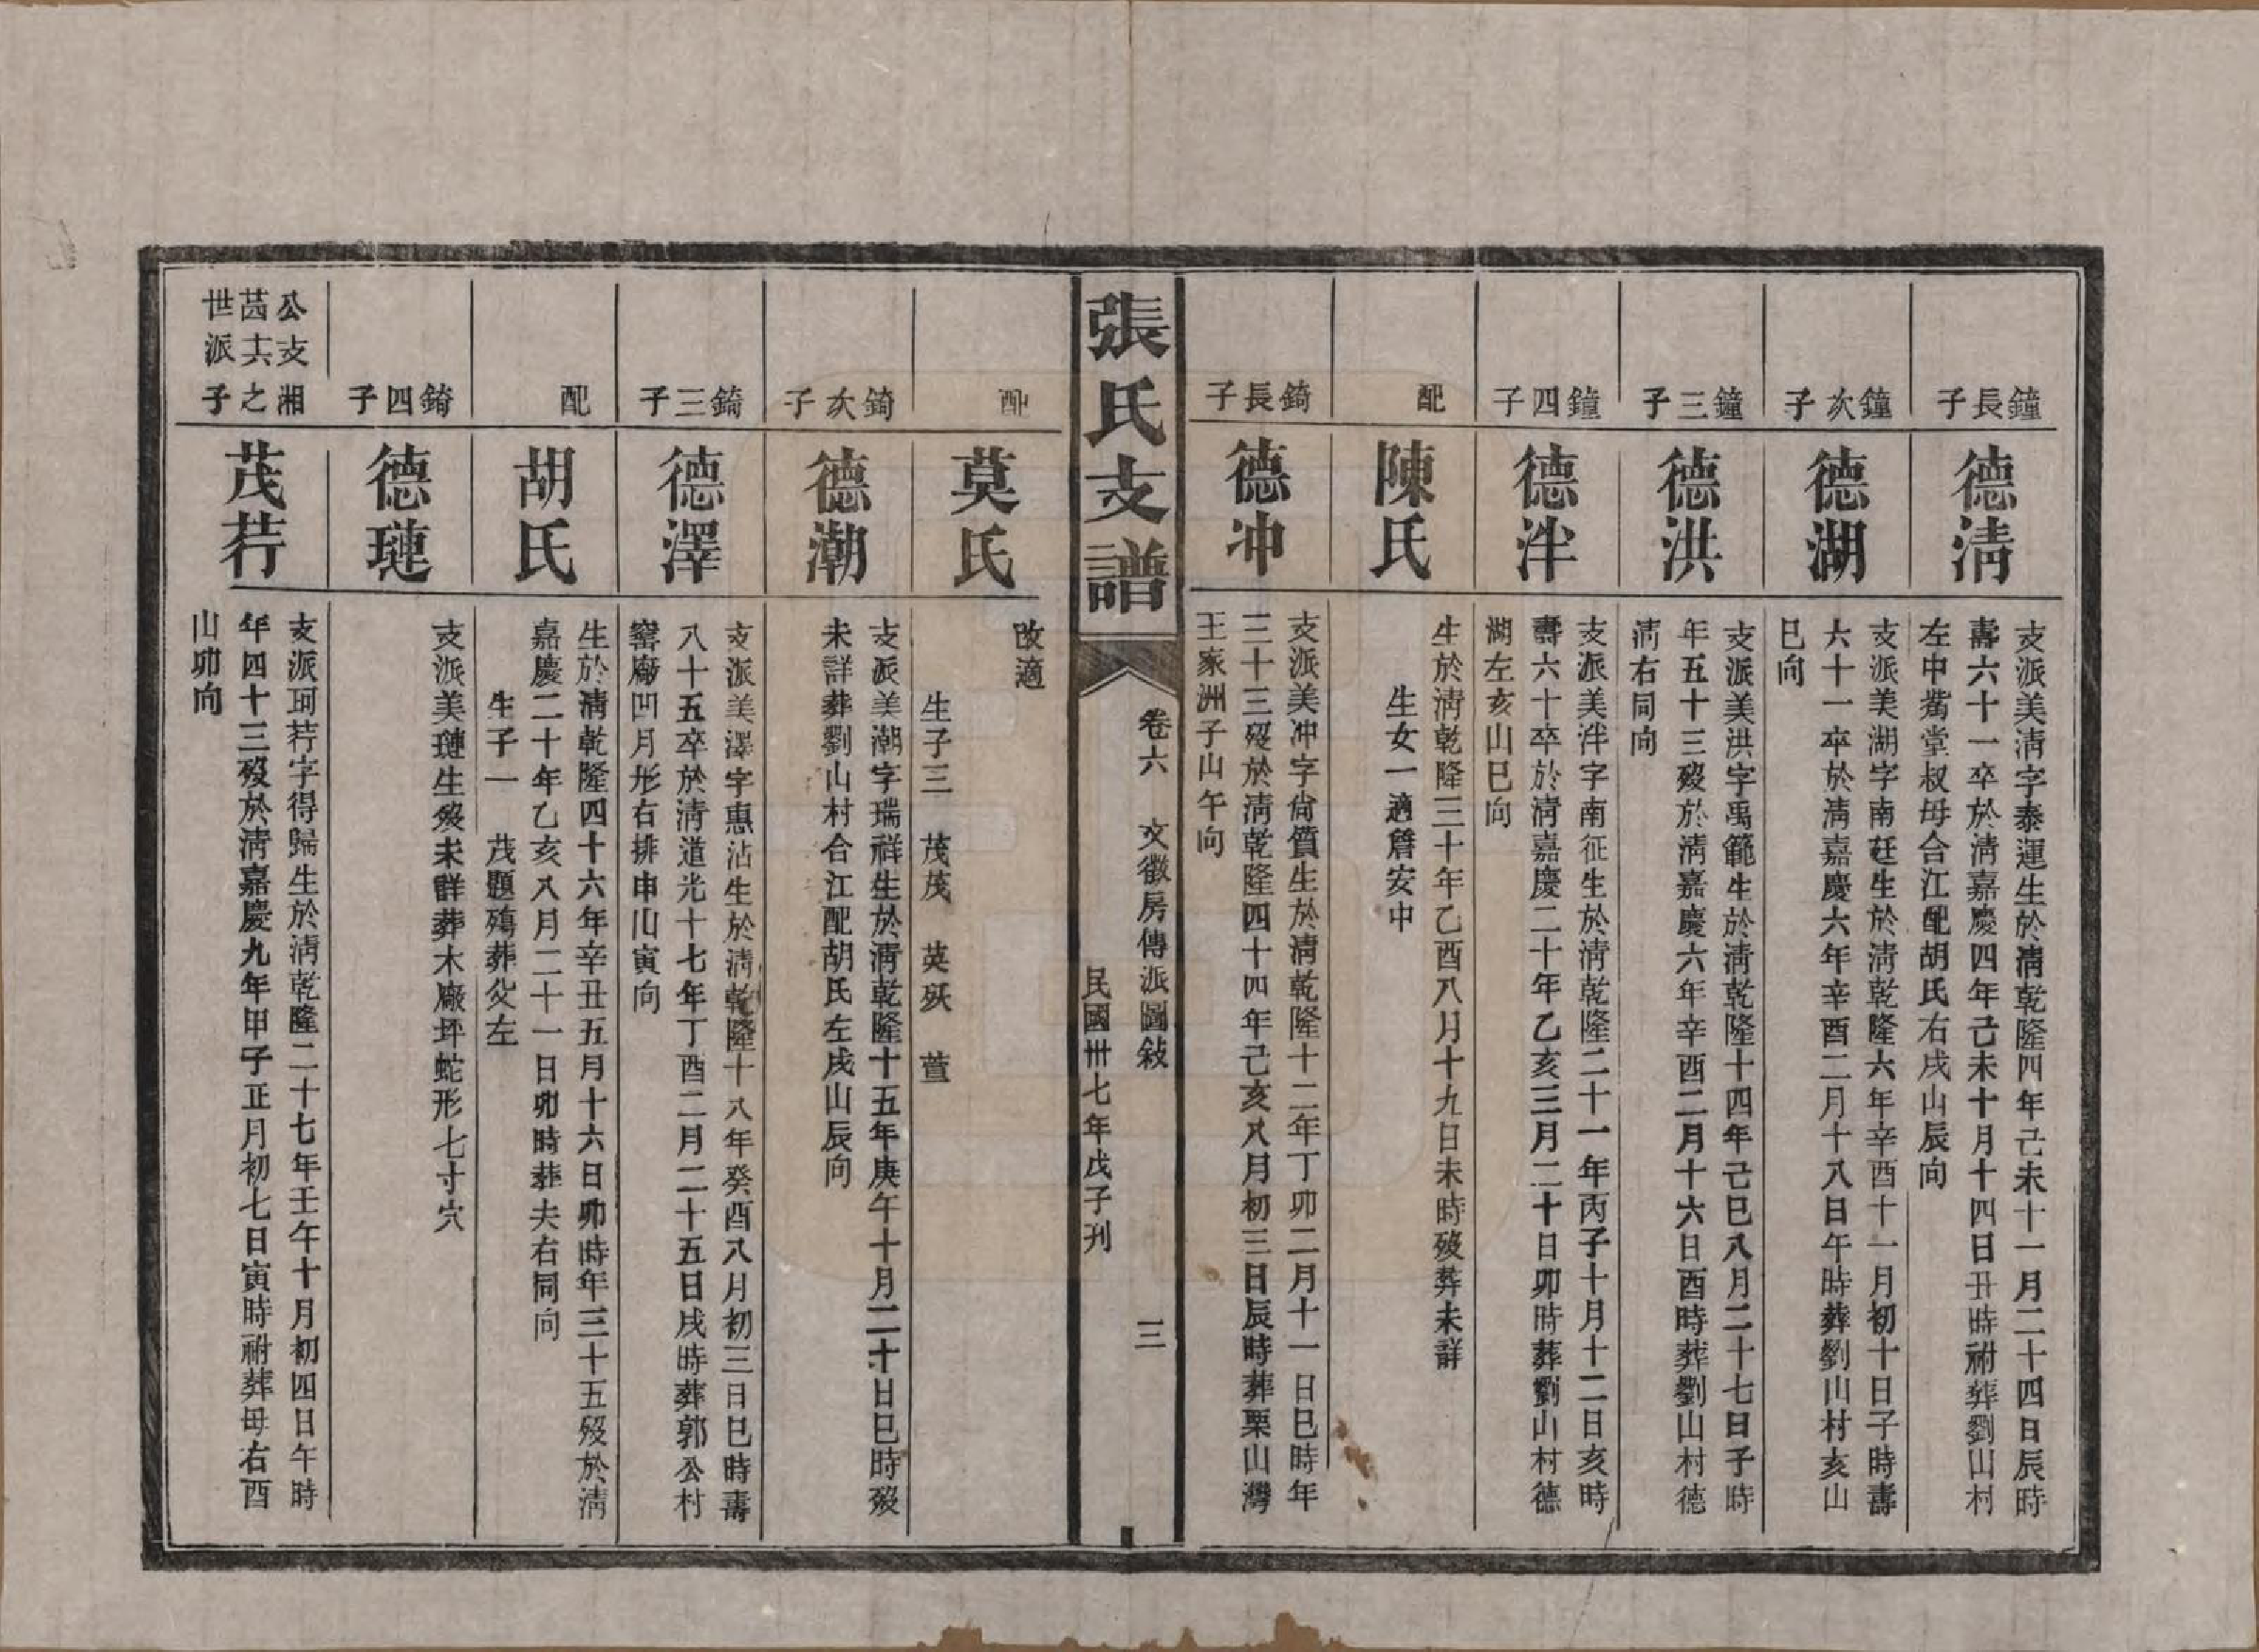 鐘長子
德清
支派美清字泰運生於清乾隆四年己未十一月二十四日辰時
壽六十一卒於清嘉慶四年己未十月十四日丑時祔葬劉山村
左中嵩堂叔母合江配胡氏右戌山辰向
鐘次子
德湖
支派美湖字南廷生於清乾隆六年辛酉十一月初十日子時壽
六十一卒於清嘉慶六年辛酉二月十八日午時葬劉山村亥山
巳向
鐘三子
德洪
支派美洪字禹範生於清乾隆十四年己巳八月二十七日子時
年五十三歿於清嘉慶六年辛酉二月十六日酉時葬劉山村德
清右同向
鐘四子
德泮
支派美泮字南征生於清乾隆二十一年丙子十月十二日亥時
壽六十卒於清嘉慶二十年乙亥三月二十日卯時葬劉山村德
湖左亥山巳向
配
陳氏
生於清乾隆三十年乙酉八月十九日未時歿葬未詳
生女一適詹安中
錡長子
德冲
支派美冲字尙質生於清乾隆十二年丁卯二月十一日巳時年
三十三歿於清乾隆四十四年己亥八月初三日辰時葬栗山灣
王家洲子山午向
張氏支譜
卷六 文徽房傳派圖敍 三
民國卅七年戊子刋
配
莫氏
改適
生子三 茂茂 英殀 萱
錡次子
德潮
支派美潮字瑞祥生於清乾隆十五年庚午十月二十日巳時歿
未詳葬劉山村合江配胡氏左戌山辰向
錡三子
德澤
支派美澤字惠沾生於清乾隆十八年癸酉八月初三日巳時壽
八十五卒於清道光十七年丁酉二月二十五日戌時葬郭公村
窰廠凹月形右排申山寅向
配
胡氏
生於清乾隆四十六年辛丑五月十六日卯時年三十五歿於清
嘉慶二十年乙亥八月二十一日卯時葬夫右同向
生子一 茂題殤葬父左
錡四子
德璉
支派美璉生歿未詳葬木廠坪蛇形七寸穴
公支湘
茝十六之
世派子
茂荇
支派珂荇字得歸生於清乾隆二十七年壬午十月初四日午時
年四十三歿於清嘉慶九年甲子正月初七日寅時祔葬母右酉
山卯向